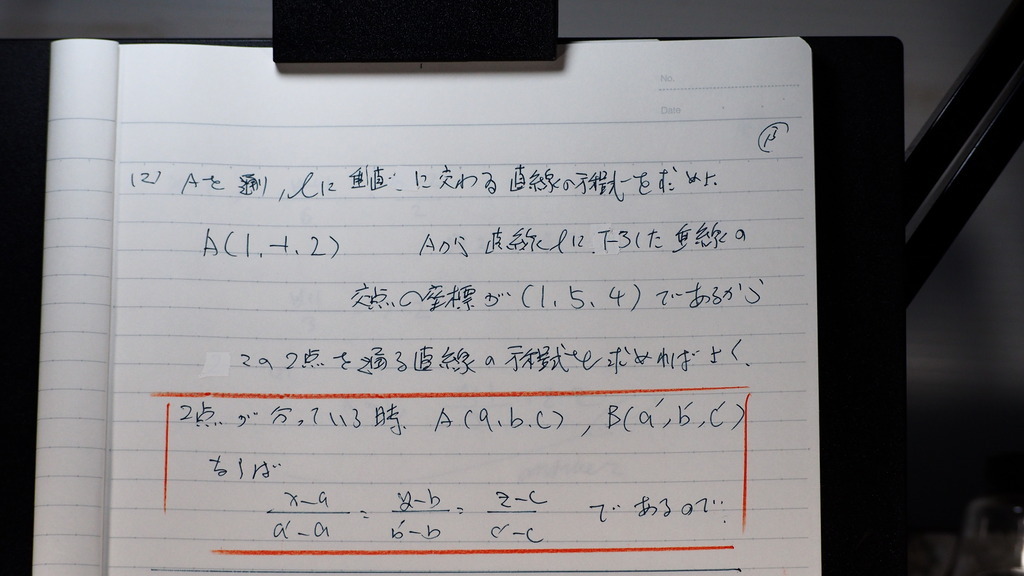 No.
Date
β
(2) Aを通り, lに垂直に交わる直線の方程式を求めよ.
A(1, -1, 2) Aから直線lに下ろした垂線の
交点の座標が(1, 5, 4)であるから
この2点を通る直線の方程式を求めればよく.
2点が分っている時. A(a, b, c), B(a', b', c')
ならば
x-a/a'-a = y-b/b'-b = z-c/c'-c であるので.